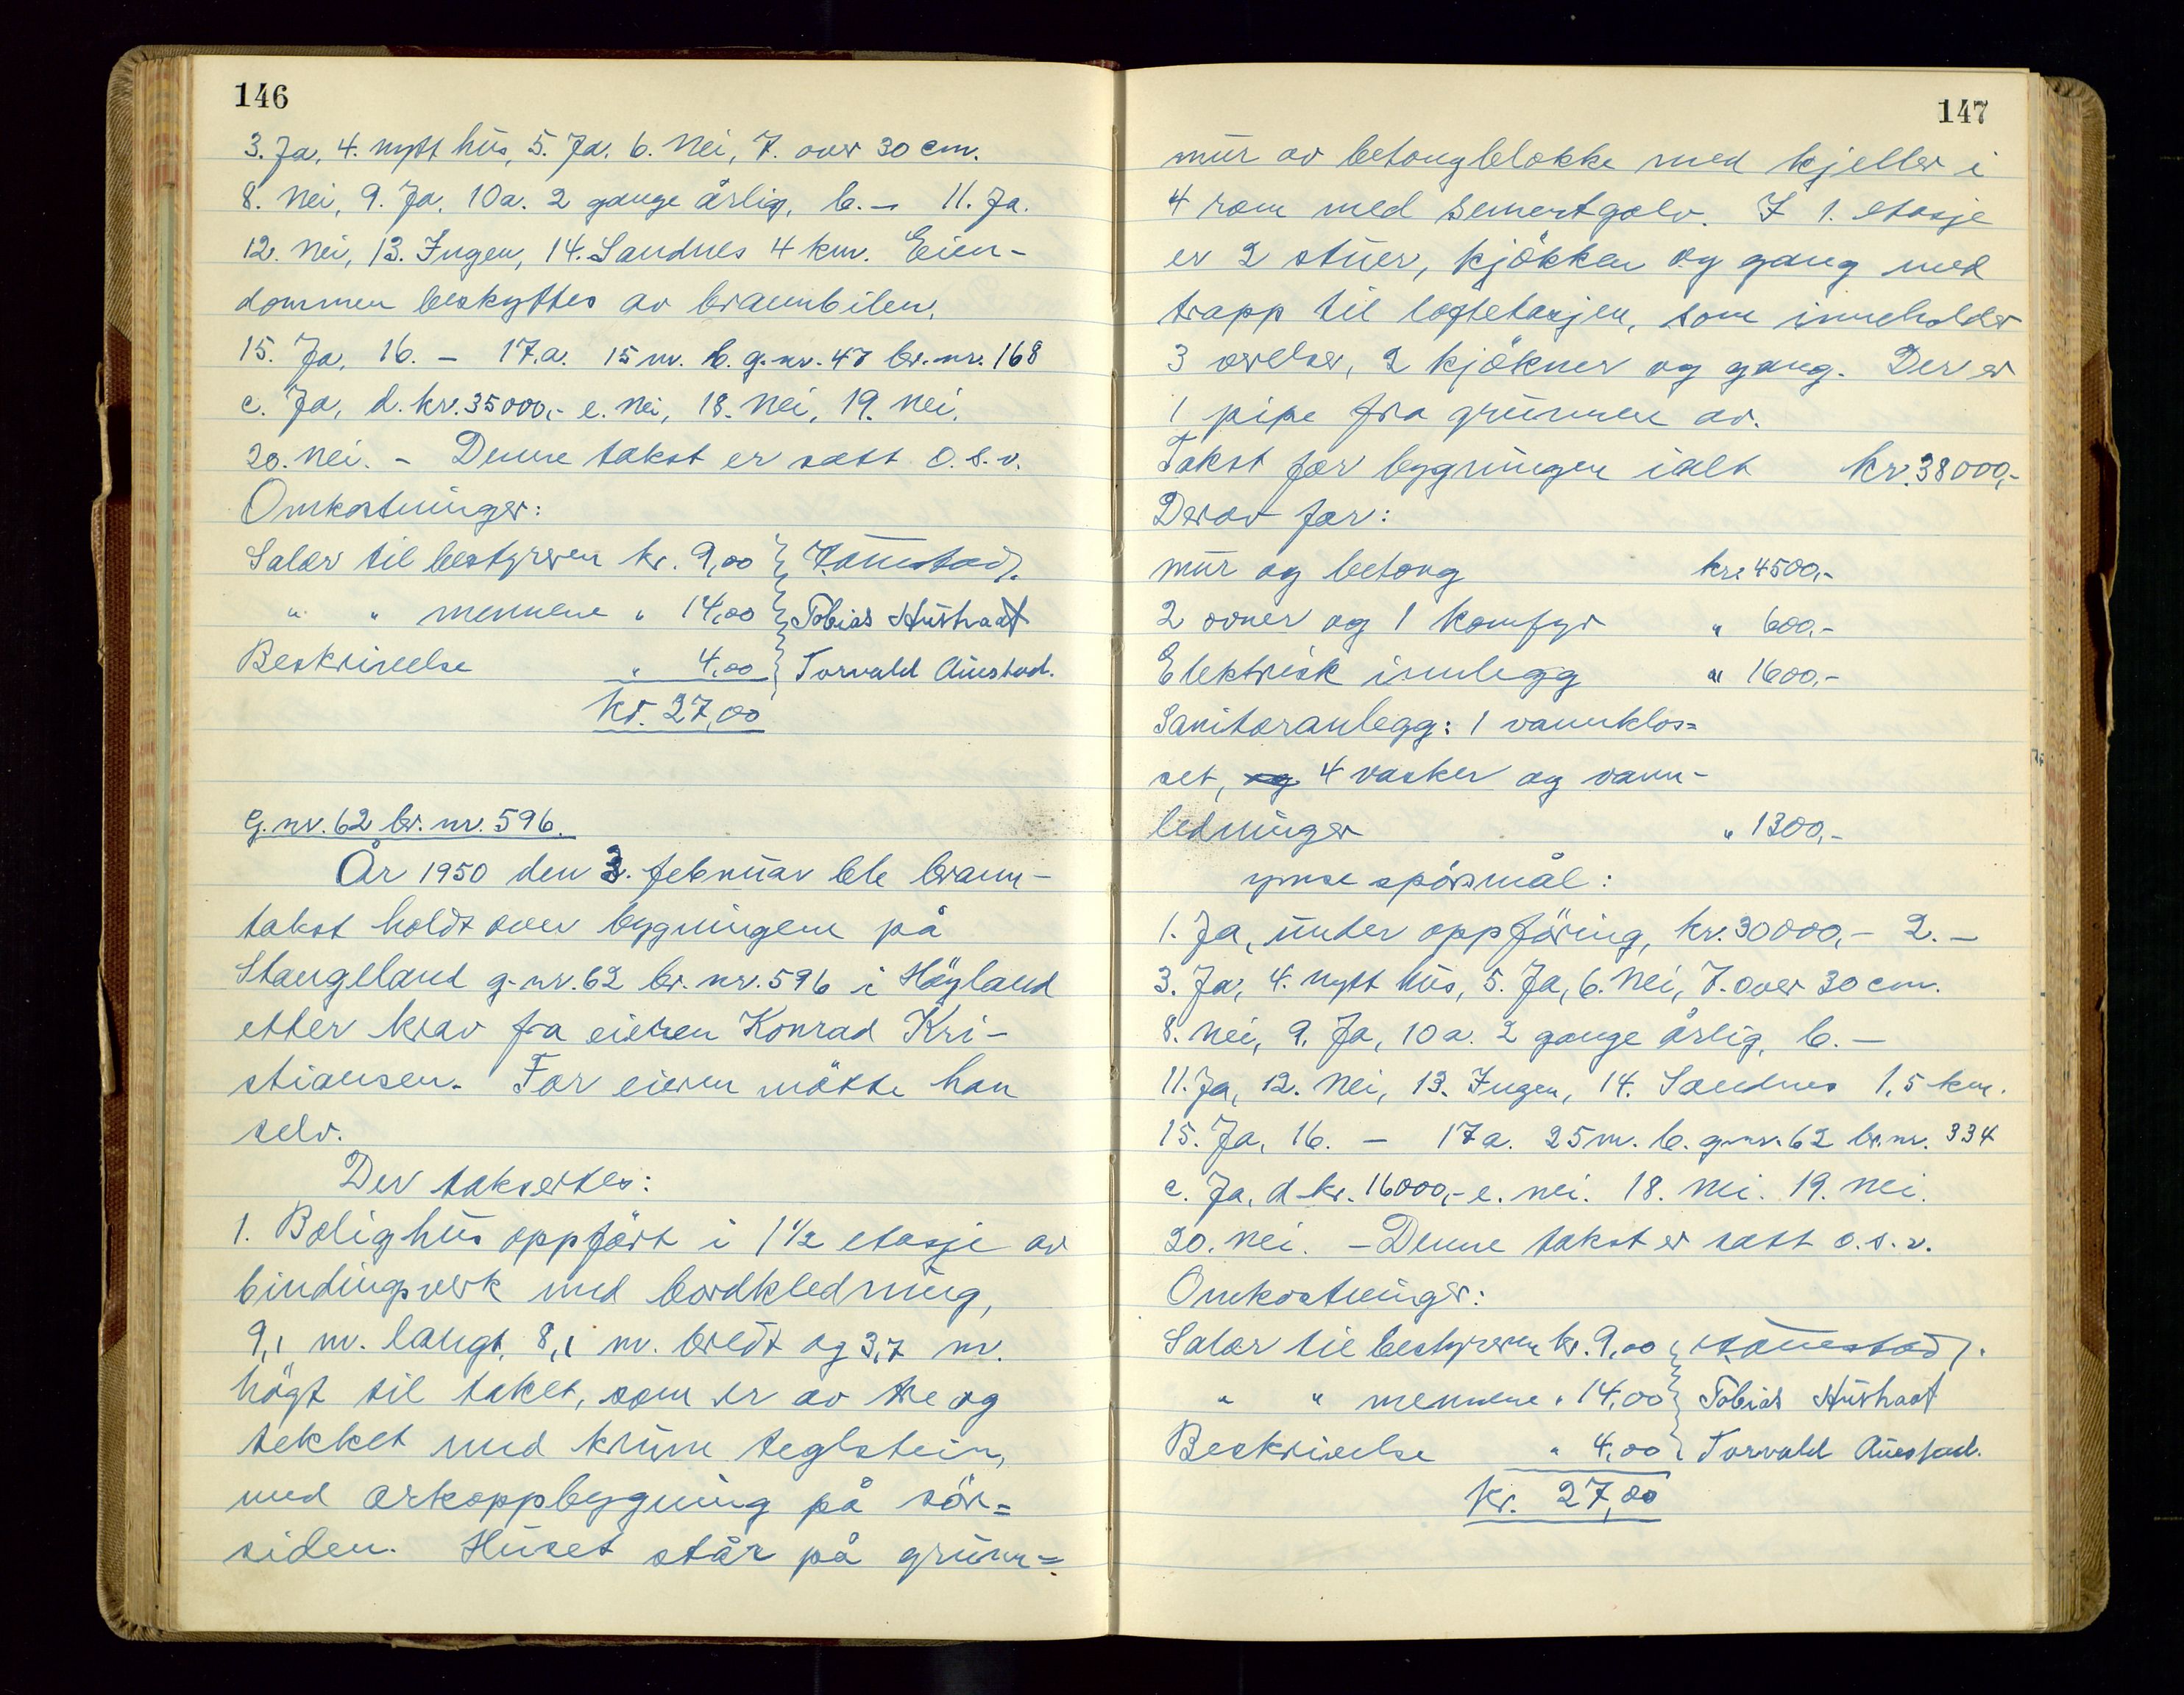 146
3. Ja, 4. nytt hus, 5. Ja. 6. Nei, 7. over 30 cm.
8. Nei, 9. Ja, 10a. 2 gange årlig, b. – 11. Ja.
12. Nei, 13. Ingen, 14. Sandnes 4 km. Eien-
dommen beskyttes av brannbilen.
15. Ja, 16. – 17.a. 15 m. b. g.nr. 47 br.nr. 168
c. Ja, d. kr. 35000,- e. Nei, 18. Nei, 19. Nei.
20. Nei. – Denne takst er satt o.s.v.
Omkostninger:
Salær til bestyreren kr. 9,00
" " mennene " 14,00 Tobias Hustrad
Beskrivelse " 4,00 Torvald Auestad.
kr. 27,00
G.nr. 62 br. nr. 596.
År 1950 den 3. februar ble brann-
takst holdt over bygningene på
Stangeland g.nr. 62 br. nr. 596 i Höyland
etter krav fra eieren Konrad Kri-
stiansen. For eieren mötte han
selv.
Der taksertes:
1. Bolighus oppfört i 1 1/2 etasje av
bindingsverk med bordkledning,
9,1 m. langt, 8,1 m. bredt og 3,7 m.
högt til taket, som er av tre og
tekket med krum teglstein,
med arkoppbygning på sör=
siden. Huset står på grunn=
147
mur av betongblokke med kjeller i
4 rom med sementgolv. I 1. etasje
er 2 stuer, kjökken og gang med
trapp til loftetasjen, som inneholder
3 værelser, 2 kjökner og gang. Der er
1 pipe fra grunnen av.
Takst for bygningen ialt kr. 38000,-
Derav for:
mur og betong kr. 4500,-
2 ovner og 1 komfyr " 600,-
Elektrisk innlegg " 1600,-
Sanitæranlegg: 1 vannklos=
set, og 4 vasker og vann-
ledninger " 1300,-
ymse spörsmål:
1. Ja, under oppföring, kr. 30000,- 2. –
3. Ja, 4. nytt hus, 5. Ja, 6. Nei, 7. over 30 cm.
8. Nei, 9. Ja, 10a. 2 gange årlig, b. –
11. Ja, 12. Nei, 13. Ingen, 14. Sandnes 1,5 km.
15. Ja, 16. – 17a. 25 m. b. g.nr. 62 br.nr. 334
c. Ja, d kr. 16000,- e. nei. 18. Nei. 19. Nei.
20. Nei. – Denne takst er satt o.s.v.
Omkostninger:
Salær til bestyreren kr. 9,00
" " mennene " 14,00 Tobias Hustrad
Beskrivelse " 4,00 Torvald Auestad.
kr. 27,00